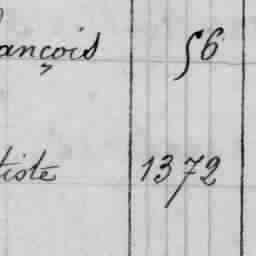 ançois 56
tiste 1372